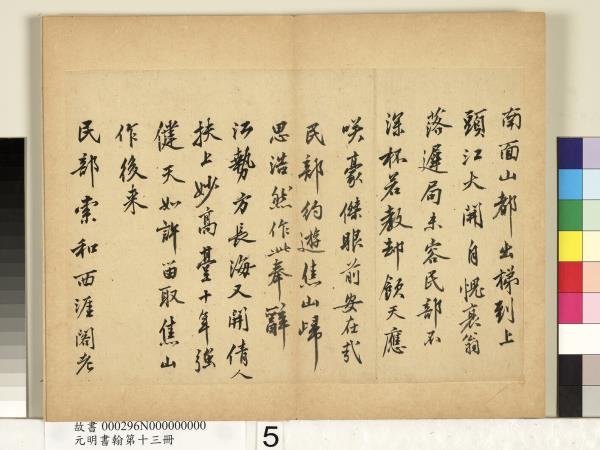 南面山都出梯到上
頭江大開自愧衰翁
落遲局未容民部不
深杯若教却飲天應
咲豪傑眼前安在哉
民部約遊焦山歸
思浩然作此奉辭
江勢方長海又開倩人
扶上妙高臺十年強
健天如許留取焦山
作後来
民部索和西涯閣老
故書 000296N000000000
元明書翰第十三冊
5